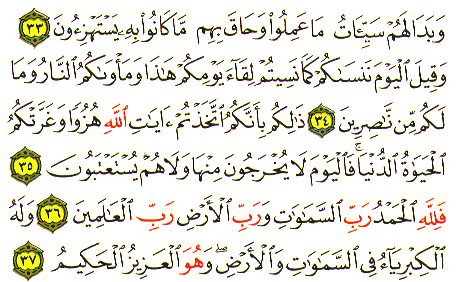 وَبَدَا لَهُمْ سَيِّـَٔاتُ مَا عَمِلُوا۟ وَحَاقَ بِهِم مَّا كَانُوا۟ بِهِۦ يَسْتَهْزِءُونَ ٣٣
وَقِيلَ ٱلْيَوْمَ نَنسَىٰكُمْ كَمَا نَسِيتُمْ لِقَآءَ يَوْمِكُمْ هَٰذَا وَمَأْوَىٰكُمُ ٱلنَّارُ وَمَا
لَكُم مِّن نَّٰصِرِينَ ٣٤ ذَٰلِكُم بِأَنَّكُمُ ٱتَّخَذْتُمْ ءَايَٰتِ ٱللَّهِ هُزُوًا وَغَرَّتْكُمُ
ٱلْحَيَوٰةُ ٱلدُّنْيَا ۚ فَٱلْيَوْمَ لَا يُخْرَجُونَ مِنْهَا وَلَا هُمْ يُسْتَعْتَبُونَ ٣٥
فَلِلَّهِ ٱلْحَمْدُ رَبِّ ٱلسَّمَٰوَٰتِ وَرَبِّ ٱلْأَرْضِ رَبِّ ٱلْعَٰلَمِينَ ٣٦ وَلَهُ
ٱلْكِبْرِيَآءُ فِى ٱلسَّمَٰوَٰتِ وَٱلْأَرْضِ ۖ وَهُوَ ٱلْعَزِيزُ ٱلْحَكِيمُ ٣٧